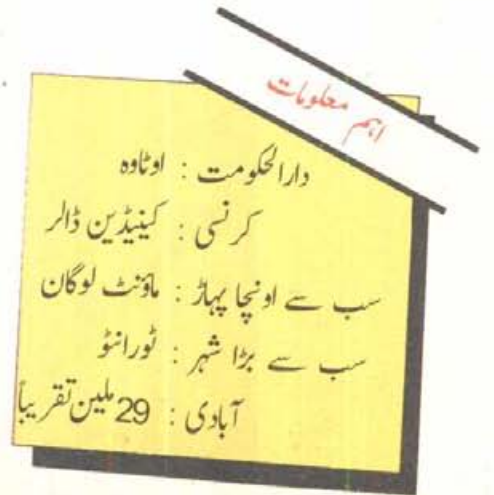 اہم معلومات
دارالحکومت : اوٹاوہ
کرنسی : کینیڈین ڈالر
سب سے اونچا پہاڑ : ماؤنٹ لوگان
سب سے بڑا شہر : ٹورانٹو
آبادی : 29 ملین تقریباً